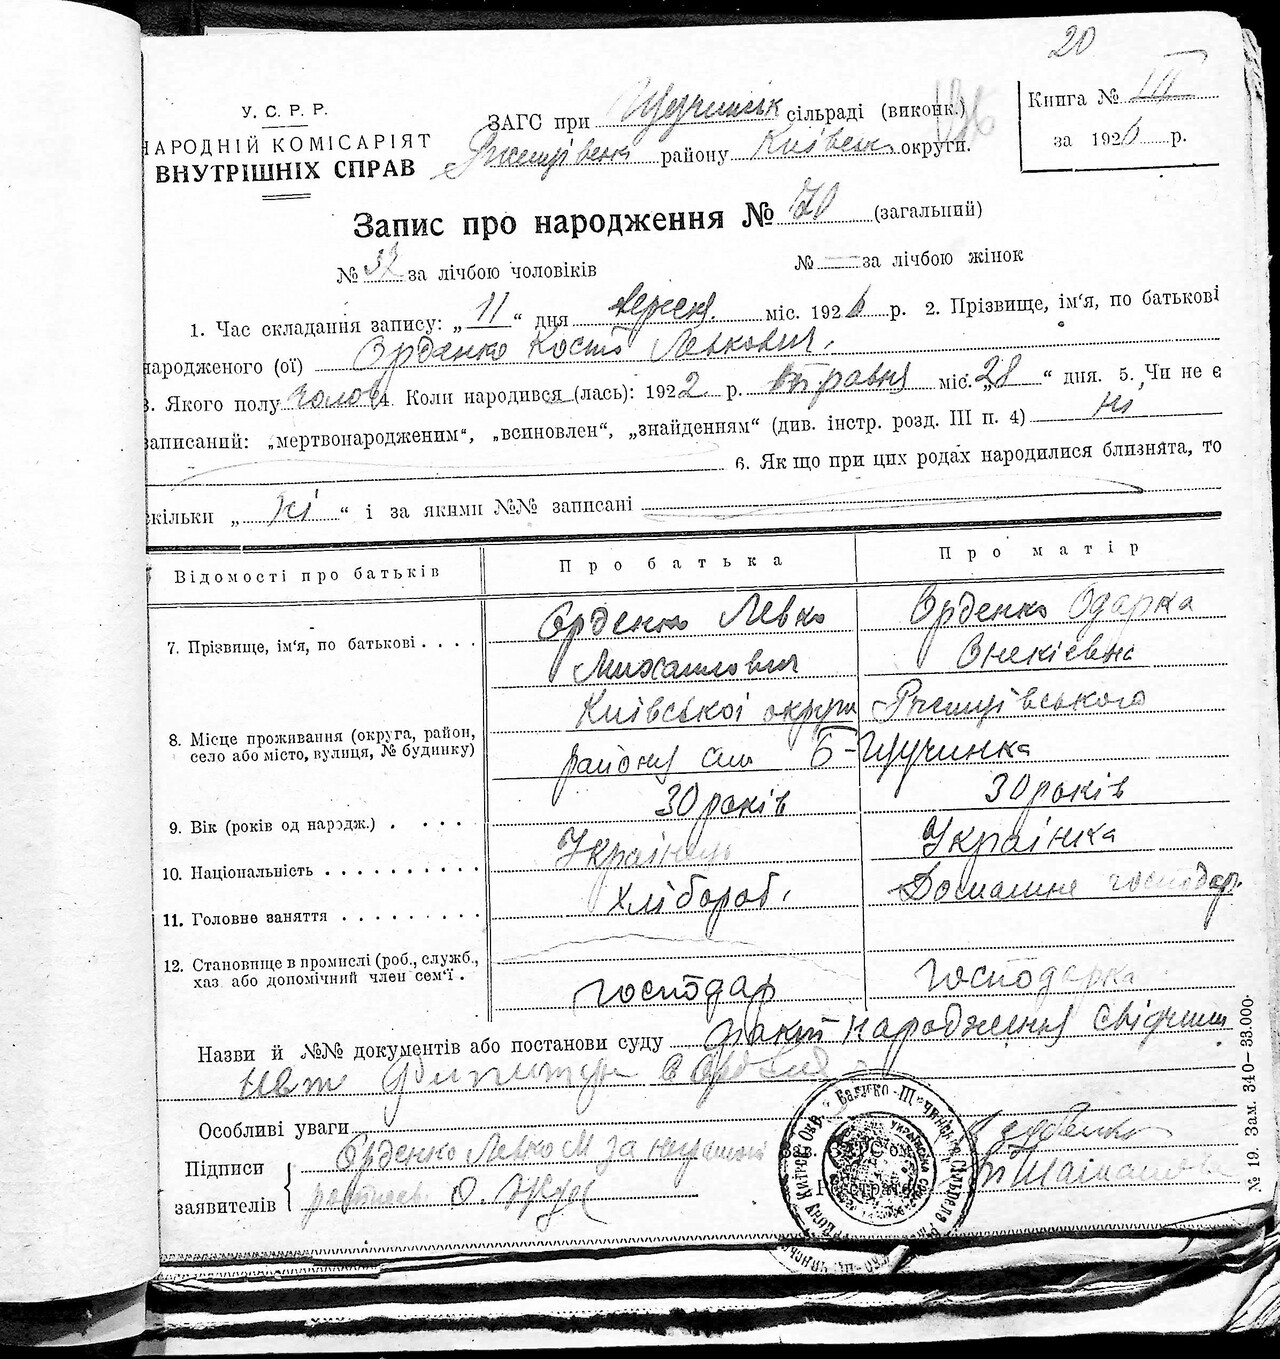 20
У. С. Р. Р.
НАРОДНІЙ КОМІСАРІЯТ
ВНУТРІШНІХ СПРАВ
ЗАГС при Щучинськ сільраді (виконк.)
Ржищівськ району Київськ округи.
Книга № III
за 1926 р.
Запис про народження № 70 (загальний)
№ 37 за лічбою чоловіків № — за лічбою жінок
1. Час складання запису: „ 11 “ дня вересня міс. 1926 р. 2. Прізвище, ім'я, по батькові
народженого (ої) Орденко Кость Левкович.
3. Якого полу чолов. 4. Коли народився (лась): 1922 р. міс. „28 “ дня. 5. Чи не є
записаний: „мертвонародженим“, „всиновлен“, „знайденням“ (див. інстр. розд. III п. 4) ні
6. Як що при цих родах народилися близнята, то
скільки „ ні “ і за якими №№ записані
Відомості про батьків Про батька Про матір
7. Прізвище, ім'я, по батькові . . . . Орденко Левко Орденко Одарка
Михайлович
8. Місце проживання (округа, район, село або місто, вулиця, № будинку) Київської округи Ржищівського
району Б-Щучинка
9. Вік (років од народж.) . . . . 30 років 30 років
10. Національність . . . . . . . . . . Українець Українка
11. Головне заняття . . . . . . . . . Хлібороб. Домашнє господар.
12. Становище в промислі (роб., служб., хаз. або допомічний член сем'ї . господар господарка
Назви й №№ документів або постанови суду факт народження свідчили
Особливі уваги
Підписи заявителів Орденко Левко М за
О.
№ 19. Зам. 340—33.000.